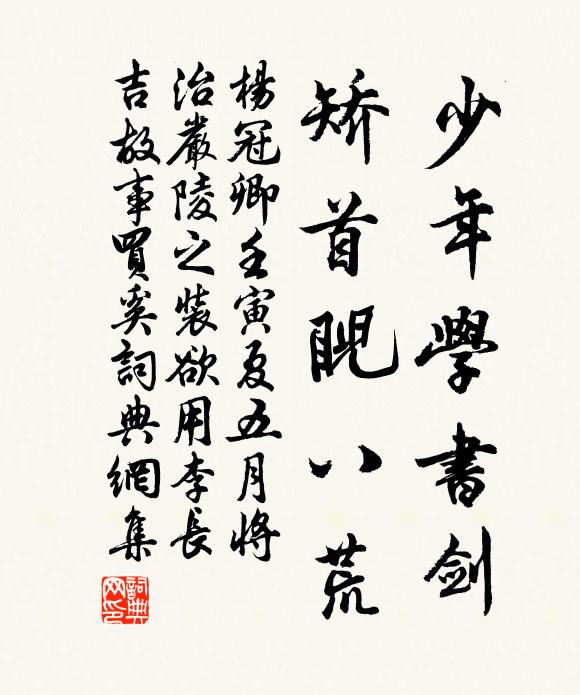 少年學書劍
矯首睨八荒
楊冠卿壬寅夏五月將
治嚴陵之裝欲用李長
吉故事買奚詞典網集
詞典網印